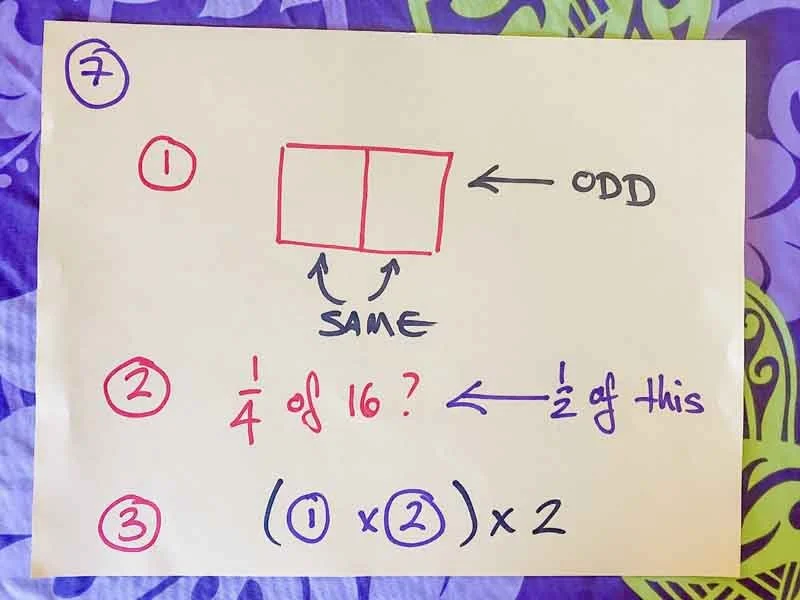 7
1
ODD
SAME
2 1/4 of 16 ? 1/2 of this
3 (1 x 2) x 2